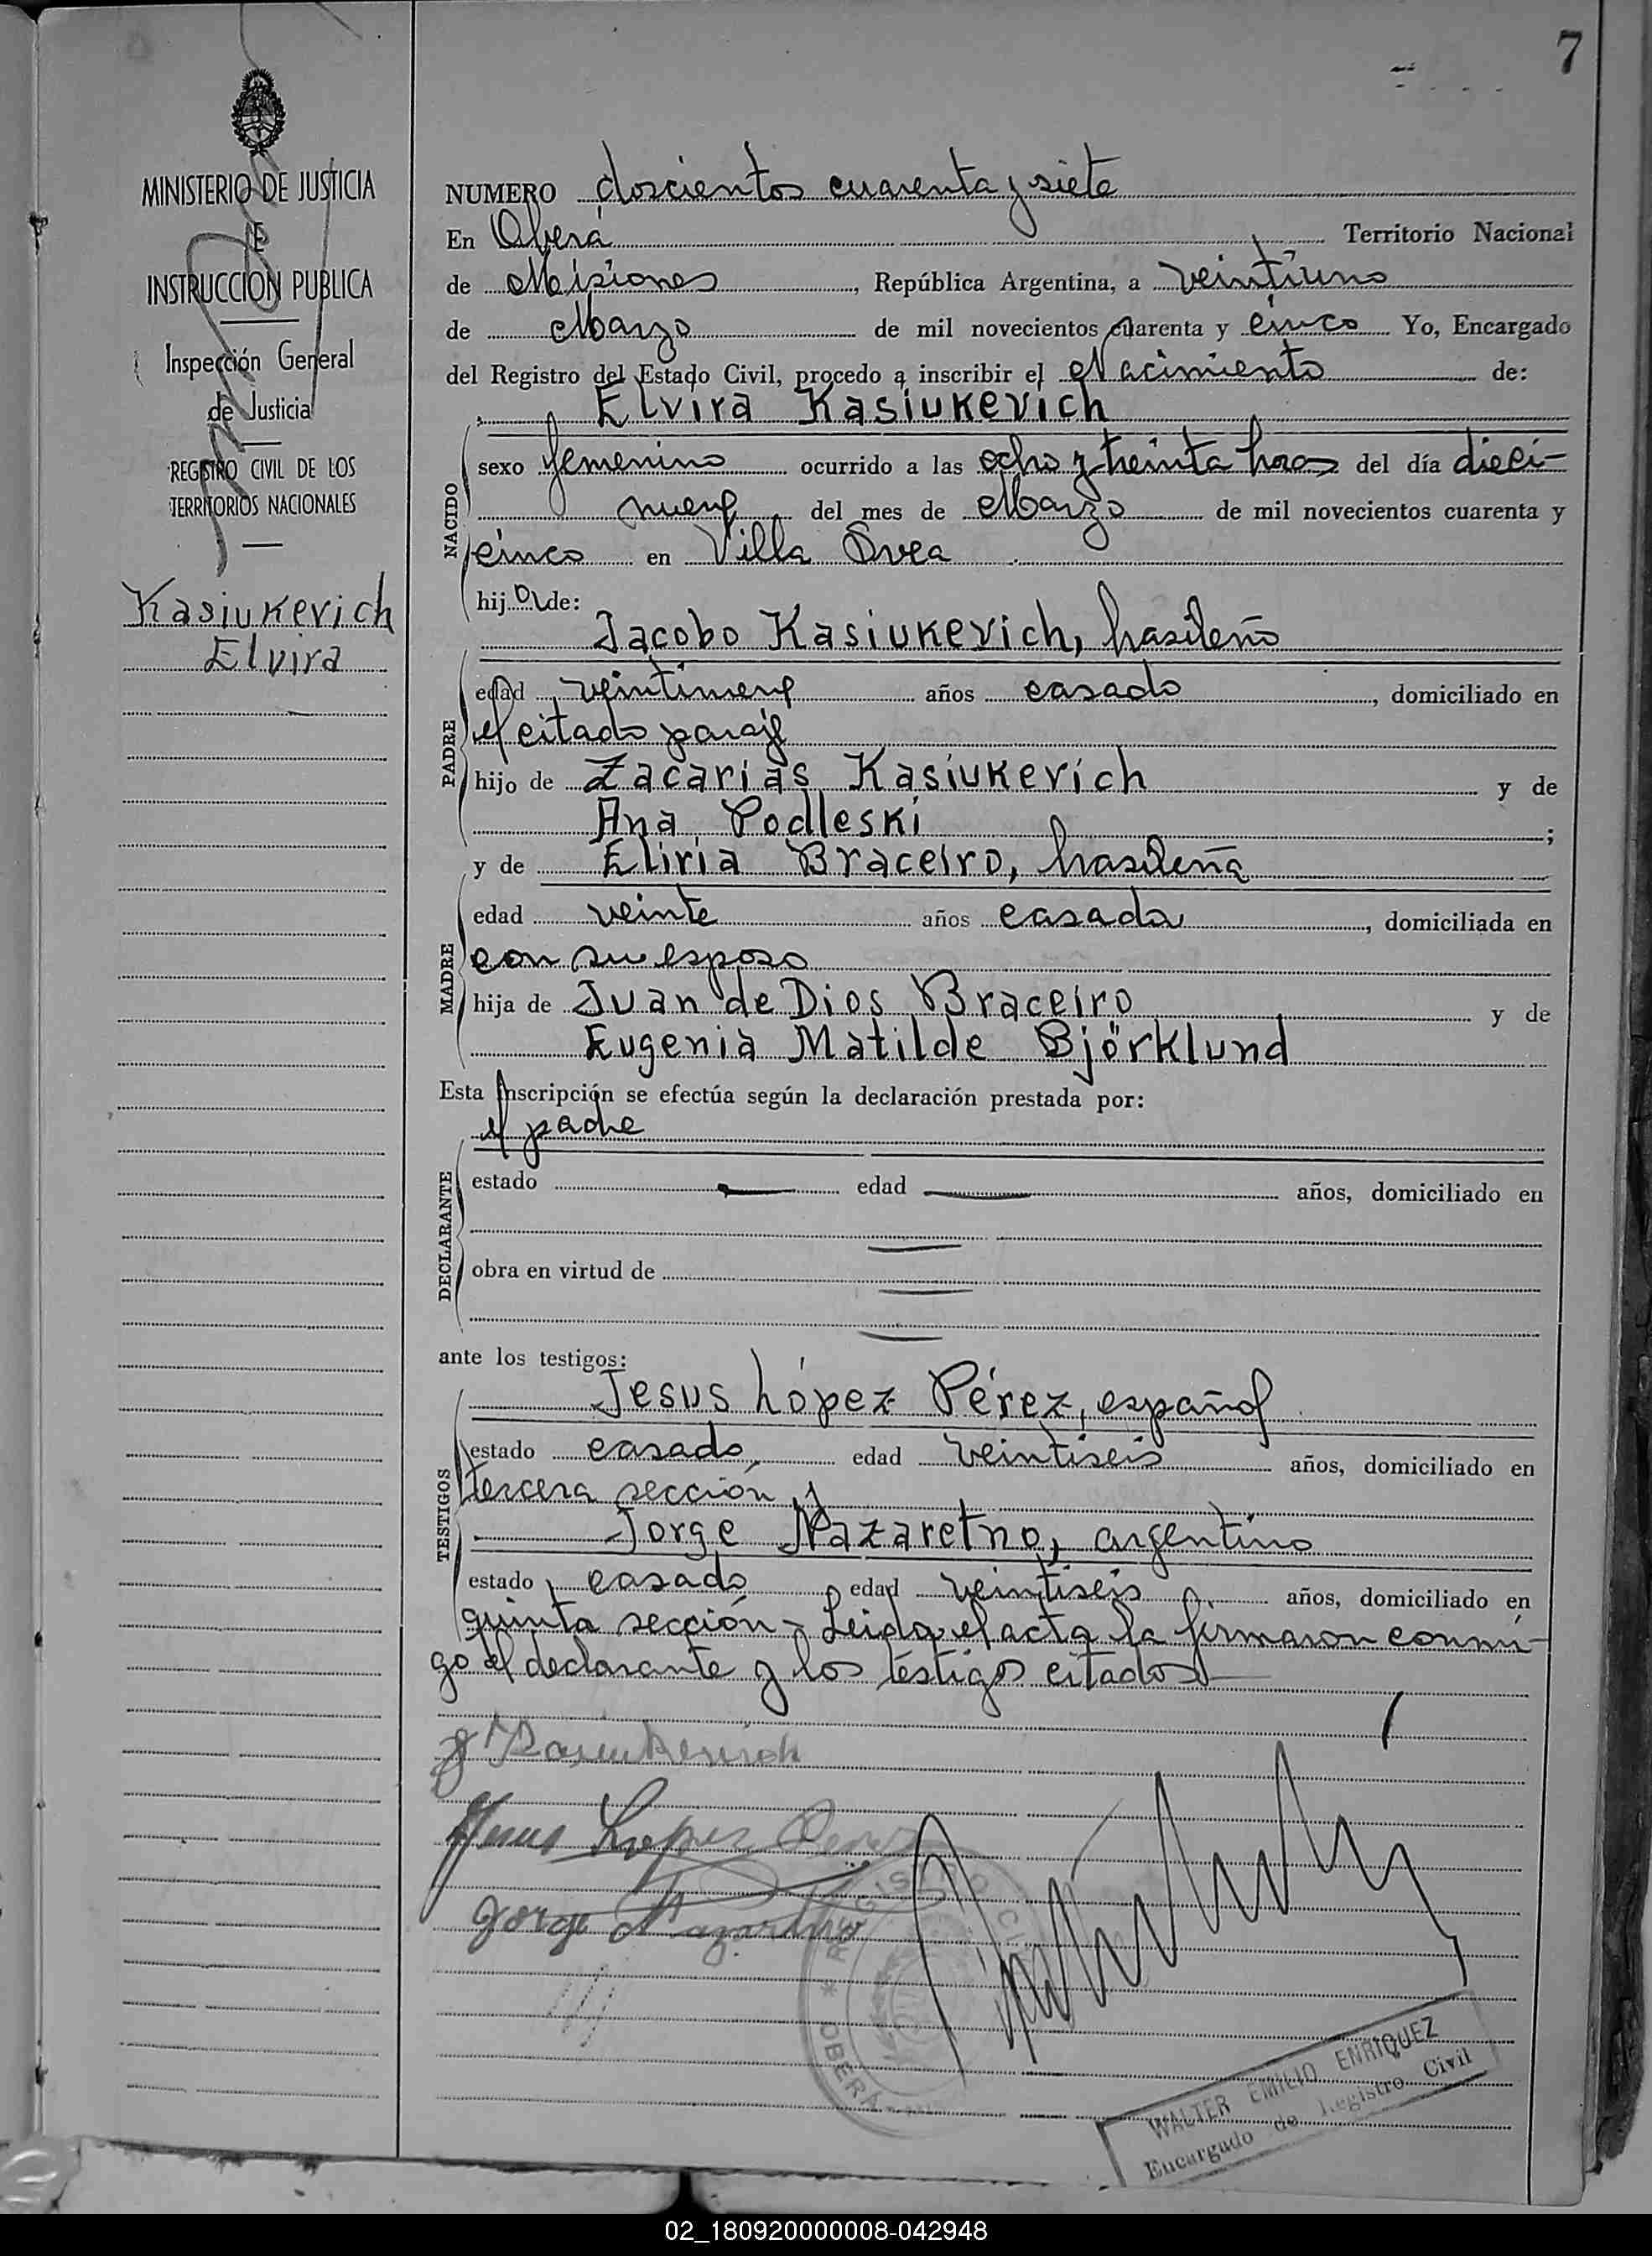 7
MINISTERIO DE JUSTICIA
E
INSTRUCCION PUBLICA
Inspección General
de Justicia
REGISTRO CIVIL DE LOS
TERRITORIOS NACIONALES
Kasiukevich
Elvira
NUMERO doscientos cuarenta y siete
En Oberá Territorio Nacional
de Misiones, República Argentina, a veintiuno
de Marzo de mil novecientos cuarenta y cinco Yo, Encargado
del Registro del Estado Civil, procedo a inscribir el Nacimiento de:
Elvira Kasiukevich
NACIDO
sexo femenino ocurrido a las ocho y treinta horas del día dieci-
nueve del mes de Marzo de mil novecientos cuarenta y
cinco en Villa Svea
hija de:
Jacobo Kasiukevich, brasileño
PADRE
edad veintinueve años casado, domiciliado en
el citado paraje
hijo de Zacarias Kasiukevich y de
Ana Podleski;
y de Eliria Braceiro, brasileña
MADRE
edad veinte años casada, domiciliada en
con su esposo
hija de Juan de Dios Braceiro y de
Eugenia Matilde Björklund
Esta Inscripción se efectúa según la declaración prestada por:
el padre
DECLARANTE
estado edad años, domiciliado en
obra en virtud de
ante los testigos:
Jesus López Pérez, español
TESTIGOS
estado casado, edad veintiseis años, domiciliado en
tercera sección y
Jorge Nazaretno, argentino
estado casado edad veintiseis años, domiciliado en
quinta sección - Leida el acta la firmaron conmi-
go el declarante y los testigos citados
J Kasiukevich
Jesus Lopez Perez
Jorge Nazaretno
REGISTRO CIVIL
* OBERÁ
WALTER EMILIO ENRIQUEZ
Encargado de Registro Civil
02_180920000008-042948